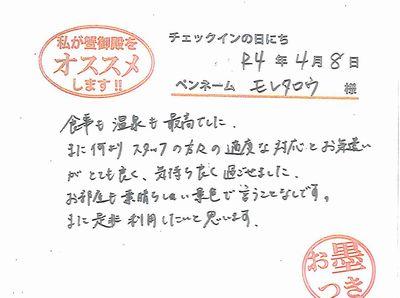 私が蟹御殿を
オススメ
します!!
チェックインの日にち
R4年4月8日
ペンネーム モレタロウ 様
食事も温泉も最高でした。
また何よりスタッフの方々の適度な対応とお気遣い
がとても良く、気持ち良く過ごせました。
お部屋も素晴らしい景色で言うことなしです。
また是非利用したいと思います。
お墨
つき